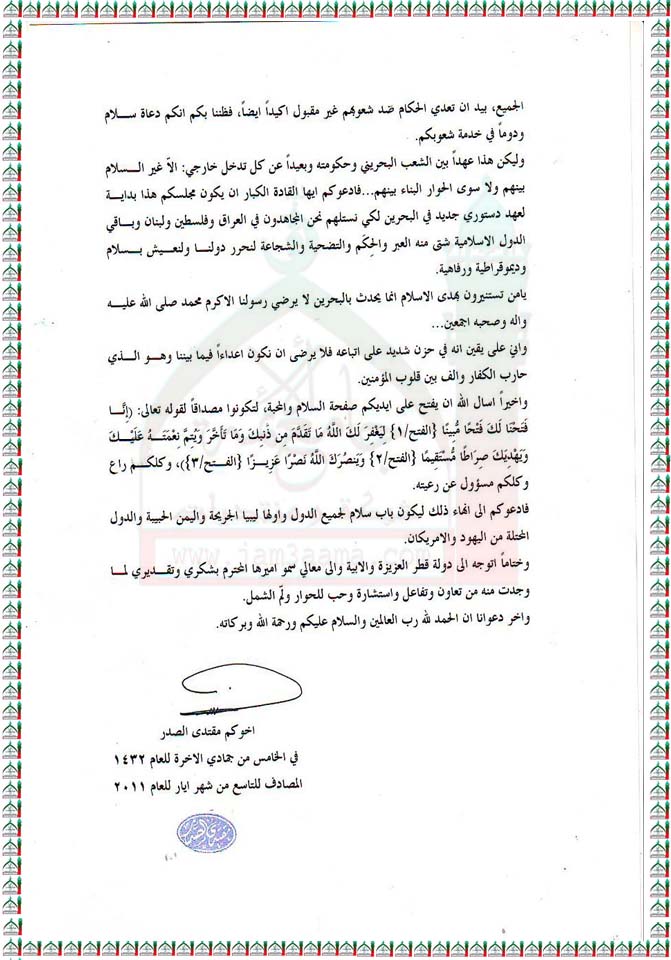 الجميع، بيد ان تعدي الحكام ضد شعوبهم غير مقبول اكيداً ايضاً، فظننا بكم انكم دعاة سلام
ودوماً في خدمة شعوبكم.
وليكن هذا عهداً بين الشعب البحريني وحكومته وبعيداً عن كل تدخل خارجي: الاّ غير السلام
بينهم ولا سوى الحوار البناء بينهم...فادعوكم ايها القادة الكبار ان يكون مجلسكم هذا بداية
لعهد دستوري جديد في البحرين لكي نستلهم نحن المجاهدون في العراق وفلسطين ولبنان وباقي
الدول الاسلامية شتى منه العبر والحِكَم والتضحية والشجاعة لنحرر دولنا ولنعيش بسلام
وديموقراطية ورفاهية.
يامن تستنيرون بهدى الاسلام انما يحدث بالبحرين لا يرضي رسولنا الاكرم محمد صلى الله عليه
واله وصحبه اجمعين...
واني على يقين انه في حزن شديد على اتباعه فلا يرضى ان نكون اعداءاً فيما بيننا وهو الذي
حارب الكفار والف بين قلوب المؤمنين.
واخيراً اسال الله ان يفتح على ايديكم صفحة السلام والمحبة، لتكونوا مصداقاً لقوله تعالى: (إِنَّا
فَتَحْنَا لَكَ فَتْحًا مُّبِينًا {الفتح/١} لِيَغْفِرَ لَكَ اللَّهُ مَا تَقَدَّمَ مِن ذَنبِكَ وَمَا تَأَخَّرَ وَيُتِمَّ نِعْمَتَهُ عَلَيْكَ
وَيَهْدِيَكَ صِرَاطًا مُّسْتَقِيمًا {الفتح/٢} وَيَنصُرَكَ اللَّهُ نَصْرًا عَزِيزًا {الفتح/٣})، وكلكم راع
وكلكم مسؤول عن رعيته.
فادعوكم الى انهاء ذلك ليكون باب سلام لجميع الدول واولها ليبيا الجريحة واليمن الحبيبة والدول
المحتلة من اليهود والامريكان.
www.jam3aama.com
وختاماً اتوجه الى دولة قطر العزيزة والابية والى معالي سمو اميرها المحترم بشكري وتقديري لما
وجدت منه من تعاون وتفاعل واستشارة وحب للحوار ولمّ الشمل.
واخر دعوانا ان الحمد لله رب العالمين والسلام عليكم ورحمة الله وبركاته.
اخوكم مقتدى الصدر
في الخامس من جمادي الاخرة للعام ١٤٣٢
المصادف للتاسع من شهر ايار للعام ٢٠١١